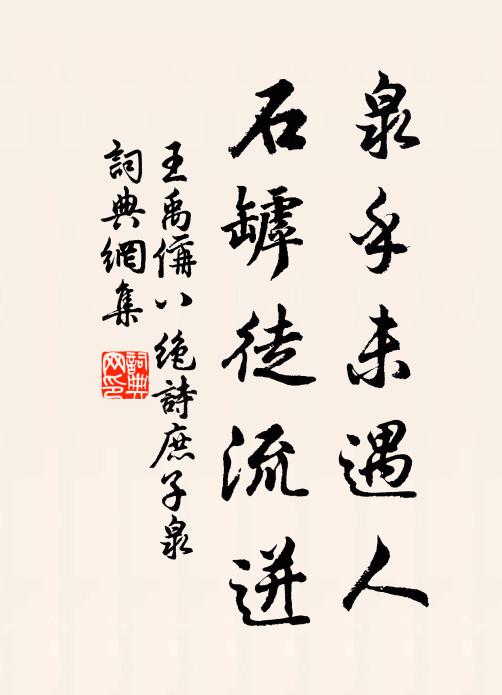 泉乎未遇人
石罅徒流迸
王禹偁八绝詩庶子泉
詞典網集
詞典网印